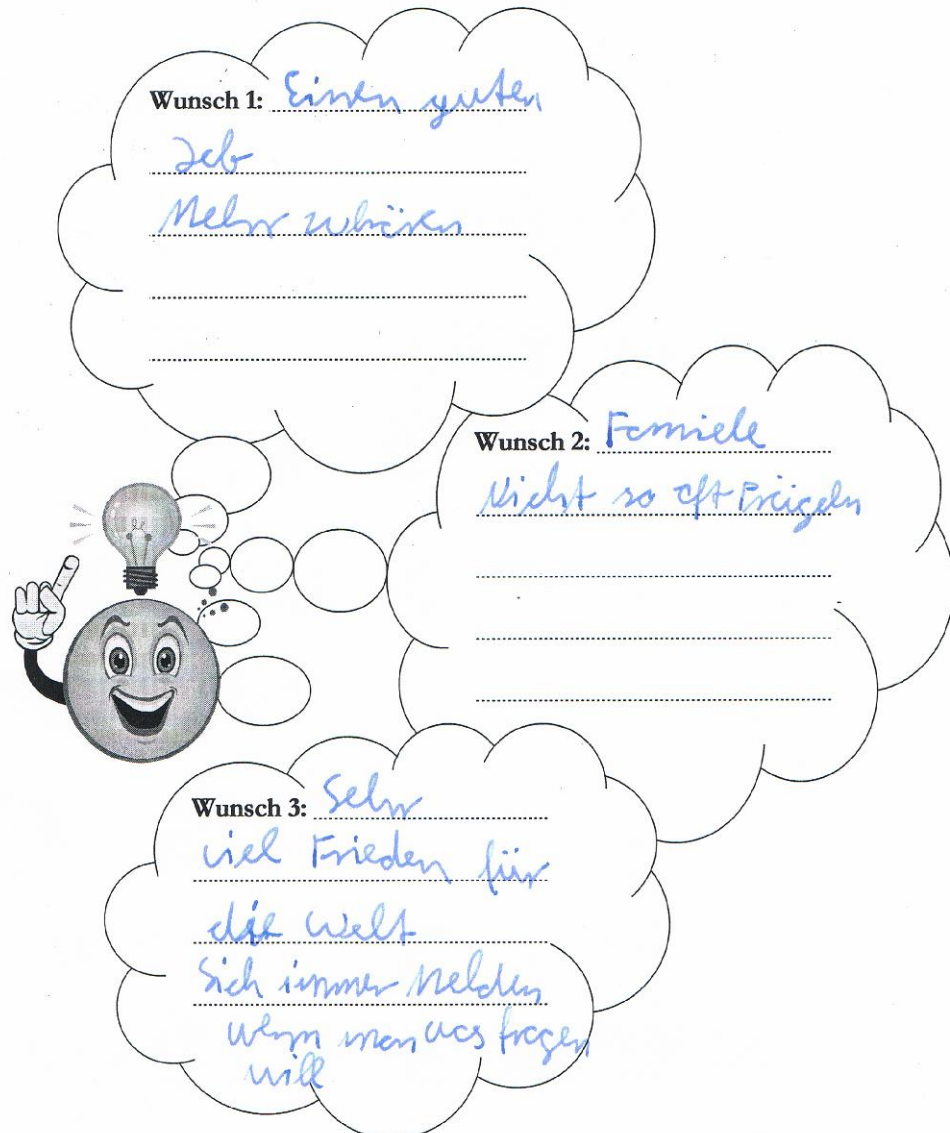 Wunsch 1: Einen guten
Job
Mehr zuhören
Wunsch 2: Famiele
Nicht so oft Prügeln
Wunsch 3: Sehr
viel Frieden für
die Welt
Sich immer Melden
wenn man was fragen
will